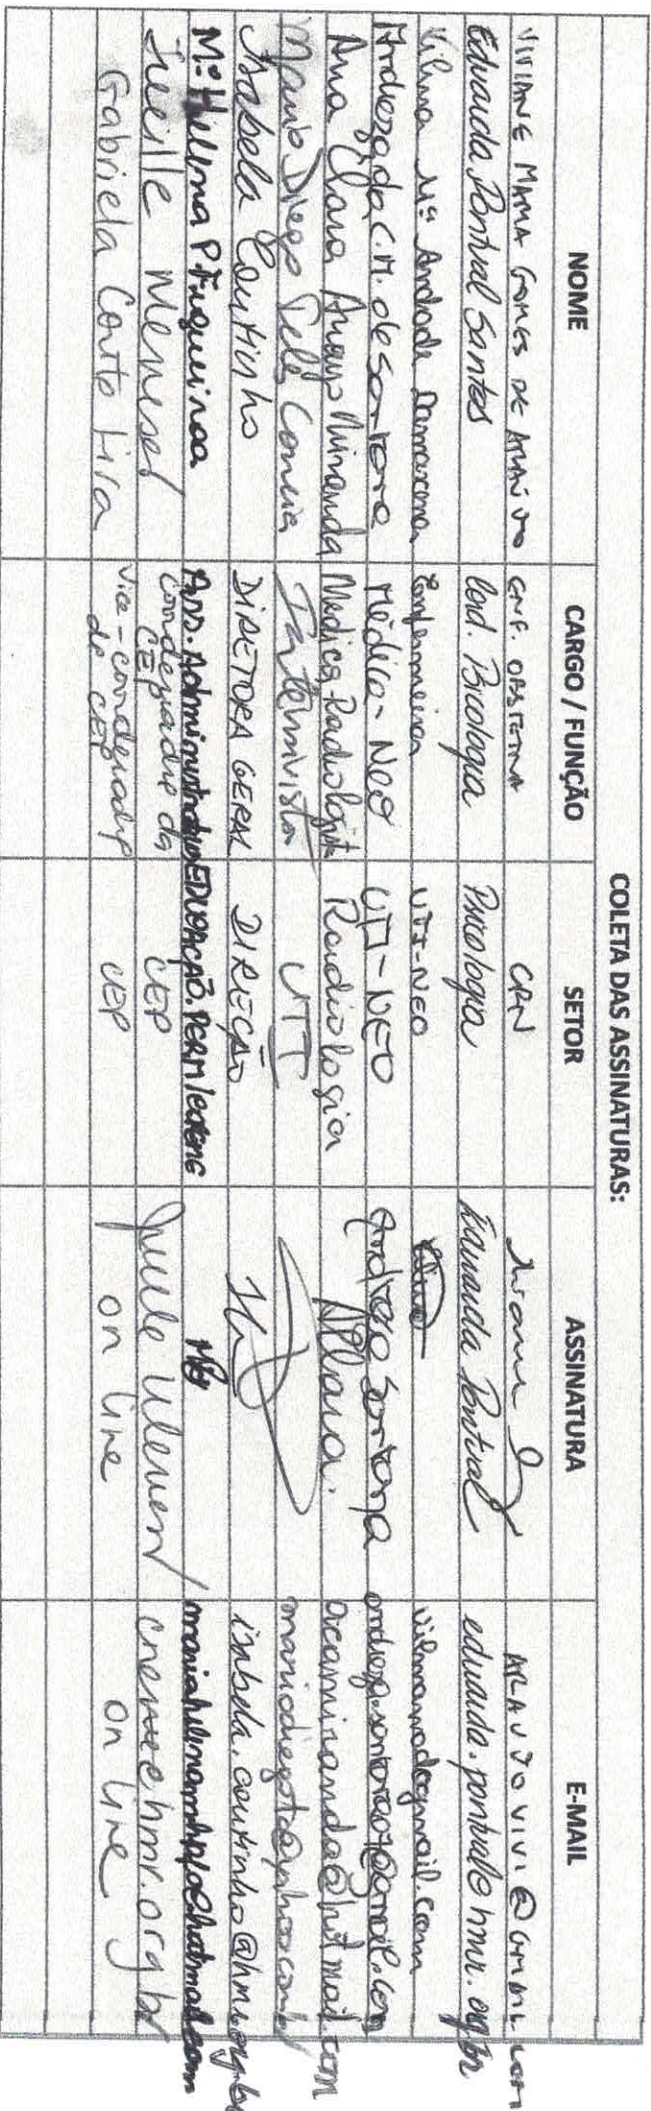 COLETA DAS ASSINATURAS:
NOME CARGO / FUNÇÃO SETOR ASSINATURA E-MAIL
VIVIANE MARIA GOMES DE ARAÚJO ENF. OBSTETRA CPN ARAUJOVIVI@GMAIL.COM
Eduarda Pontual Santos Cord. Psicologia Psicologia Eduarda Pontual eduarda.pontual@hmr.org.br
Vilma Mª Andrade Damascena Enfermeira UTI-NEO
Andreza da C.M. de Santana Médica-Neo UTI-NEO Andreza Santana
Ana Clara Araujo Miranda Médica Radiologista Radiologia AClara. acamiranda@hotmail.com
Mario Diego Teles Correia Intensivista UTI
Isabela Coutinho DIRETORA GERAL DIREÇÃO isabela.coutinho@hmr.org.br
Mª Helena P. Figueiroa Ass. Administrativo EDUCAÇÃO PERM
Jucille Meneses Coordenadora do CEP CEP Jucille Meneses
Gabriela Couto Lira Vice-coordenadora do CEP CEP on line on line